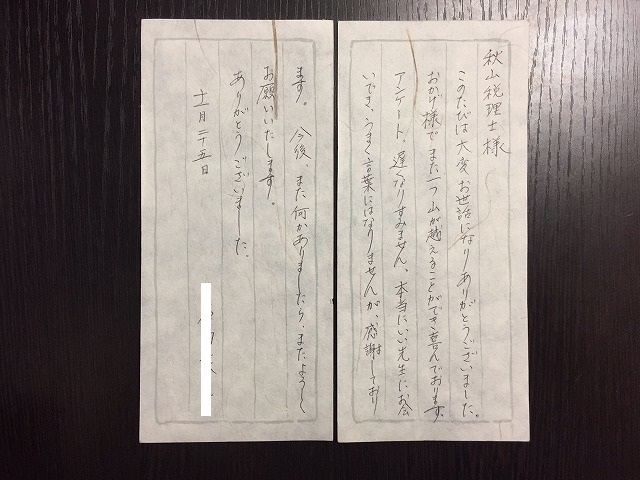 秋山税理士様
このたびは大変お世話になりありがとうございました。
おかげ様で、また一つ山が越えることができ喜んでおります。
アンケート、遅くなりすみません。本当にいい先生にお会
いでき、うまく言葉にはなりませんが、感謝しており
ます。今後、また何かありましたら、またよろしく
お願いいたします。
ありがとうございました。
十一月二十五日